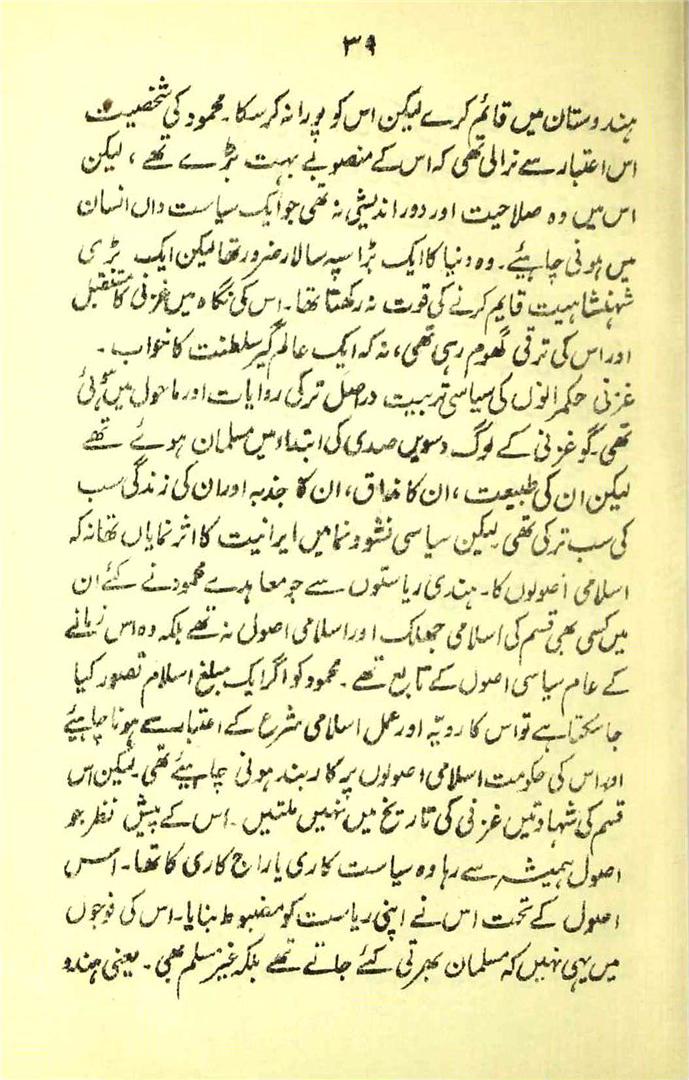 ۳۹
ہندوستان میں قائم کرے لیکن اس کو پورا نہ کر سکا۔ محمود کی شخصیت
اس اعتبار سے نرالی تھی کہ اس کے منصوبے بہت بڑے تھے ، لیکن
اس میں وہ صلاحیت اور دور اندیشی نہ تھی جو ایک سیاست داں انسان
میں ہونی چاہیئے۔ وہ دنیا کا ایک بڑا سپہ سالار ضرور تھا لیکن ایک بڑی
شہنشاہیت قایم کرنے کی قوت نہ رکھتا تھا۔ اس کی نگاہ میں غزنی کا مستقبل
اور اس کی ترقی گھوم رہی تھی، نہ کہ ایک عالم گیر سلطنت کا خواب ۔
غزنی حکمرانوں کی سیاسی تربیت دراصل ترکی روایات اور ماحول میں ہوئی
تھی۔ گو غزنی کے لوگ دسویں صدی کی ابتداء میں مسلمان ہوئے تھے
لیکن ان کی طبیعت ، ان کا مذاق، ان کا جذبہ اور ان کی زندگی سب
کی سب ترکی تھی۔ لیکن سیاسی نشوونما میں ایرانیت کا اثر نمایاں تھا نہ کہ
اسلامی اصولوں کا۔ ہندی ریاستوں سے جو معاہدے محمود نے کئے ان
میں کسی بھی قسم کی اسلامی جھلک اور اسلامی اصول نہ تھے بلکہ وہ اس زمانے
کے عام سیاسی اصول کے تابع تھے ۔ محمود کو اگر ایک مبلغ اسلام تصور کیا
جا سکتا ہے تو اس کا رویّہ اور عمل اسلامی شرع کے اعتبار سے ہونا چاہیئے
اور اس کی حکومت اسلامی اصولوں پر کاربند ہونی چاہیئے تھی۔ لیکن اس
قسم کی شہادتیں غزنی کی تاریخ میں نہیں ملتیں ۔ اس کے پیش نظر جو
اصول ہمیشہ سے رہا وہ سیاست کاری یا راج کاری کا تھا۔ اس
اصول کے تحت اس نے اپنی ریاست کو مضبوط بنایا۔ اس کی فوجوں
میں یہی نہیں کہ مسلمان بھرتی کئے جاتے تھے بلکہ غیر مسلم بھی ۔ یعنی ہندو